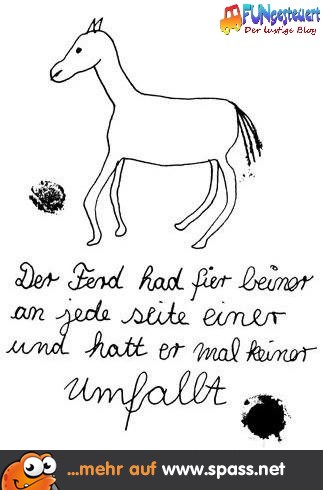 FUNgesteuert
Der lustige Blog
Der Ferd had fier beiner
an jede seite einer
und hatt er mal keiner
umfallt
...mehr auf www.spass.net